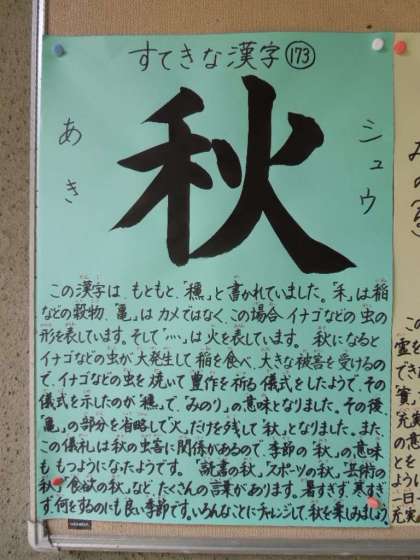 すてきな漢字 173
あき
秋
シュウ
この漢字は、もともと、「穐」と書かれていました。「禾」は稲
などの穀物、「亀」はカメではなく、この場合、イナゴなどの虫の
形を表しています。そして「灬」は火を表しています。秋になると
イナゴなどの虫が大発生して稲を食べ、大きな被害を受けるの
で、イナゴなどの虫を焼いて豊作を祈る儀式をしたようで、その
儀式を示したのが「穐」で、「みのり」の意味となりました。その後、
「亀」の部分を省略して「火」だけを残して「秋」となりました。また、
この儀礼は秋の虫害に関係があるので、季節の「秋」の意味
ももつようになったようです。「読書の秋」「スポーツの秋」「芸術の
秋」「食欲の秋」など、たくさんの言葉があります。暑すぎず、寒すぎ
ず、何をするのにも良い季節です。いろんなことにチャレンジして、秋を楽しみましょう。
この
霊を
でき
「實」
充実
の意
とを
ように
一日
充実